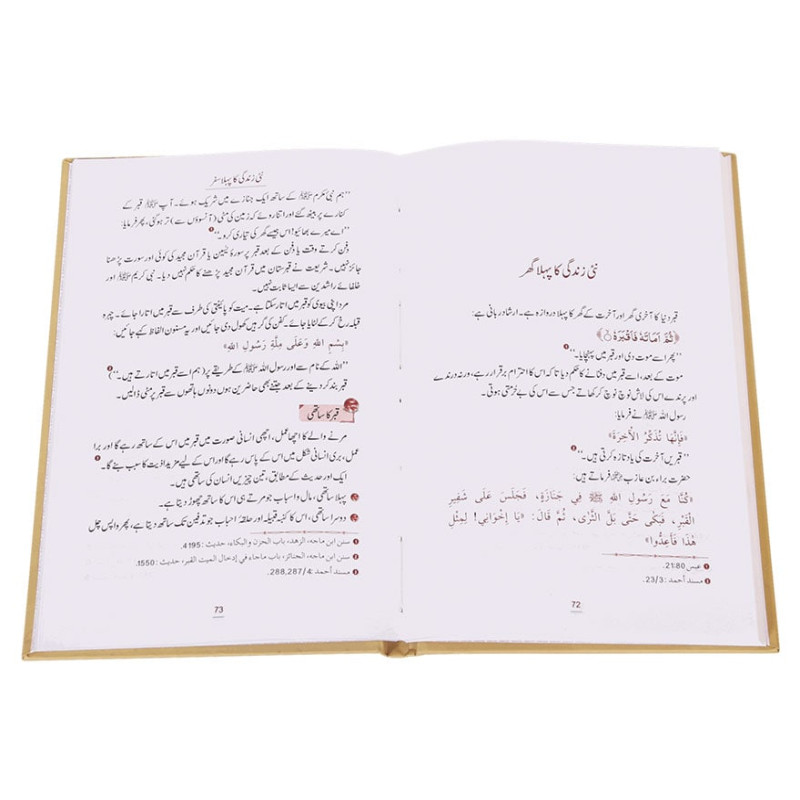 نئی زندگی کا پہلا گھر
قبر دنیا کا آخری گھر اور آخرت کے گھر کا پہلا دروازہ ہے۔ ارشاد ربانی ہے:
﴿ثُمَّ أَمَاتَهُ فَأَقْبَرَهُ﴾
”پھر اسے موت دی اور قبر میں پہنچایا۔“
موت کے بعد، اسے قبر میں دفنانے کا حکم دیا تاکہ اس کا احترام برقرار رہے، ورنہ درندے
اور پرندے اس کی لاش نوچ نوچ کر کھاتے جس سے اس کی بے حرمتی ہوتی۔
رسول اللہ ﷺ نے فرمایا:
«فَإِنَّهَا تُذَكِّرُ الْآخِرَةَ»
”قبریں آخرت کی یاد تازہ کرتی ہیں۔“
حضرت براء بن عازب رضی اللہ عنہ فرماتے ہیں:
«كُنَّا مَعَ رَسُولِ اللهِ ﷺ فِي جَنَازَةٍ، فَجَلَسَ عَلَى شَفِيرِ
الْقَبْرِ، فَبَكَى حَتَّى بَلَّ الثَّرَى، ثُمَّ قَالَ: «يَا إِخْوَانِي! لِمِثْلِ
هَذَا فَأَعِدُّوا»
1 عبس 21:80.
2 مسند أحمد: 23/3.
72
نئی زندگی کا پہلا سفر
”ہم نبی مکرم ﷺ کے ساتھ ایک جنازے میں شریک ہوئے۔ آپ ﷺ قبر کے
کنارے پر بیٹھ گئے اور اتنا روئے کہ زمین کی مٹی (آنسوؤں سے) تر ہو گئی، پھر فرمایا:
”اے میرے بھائیو! اس جیسے گھر کی تیاری کرو۔“ 1
دفن کرتے وقت یا دفن کے بعد قبر پر سورۂ یٰسین یا قرآن مجید کی کوئی اور سورت پڑھنا
جائز نہیں۔ شریعت نے قبرستان میں قرآن مجید پڑھنے کا حکم نہیں دیا۔ نبی کریم ﷺ اور
خلفائے راشدین سے ایسا ثابت نہیں۔
مرد اپنی بیوی کو قبر میں اتار سکتا ہے۔ میت کو پائنتی کی طرف سے قبر میں اتارا جائے۔ چہرہ
قبلہ رخ کر کے لٹایا جائے۔ کفن کی گرہیں کھول دی جائیں اور یہ مسنون الفاظ کہے جائیں:
«بِسْمِ اللهِ وَعَلَى مِلَّةِ رَسُولِ اللهِ»
”اللہ کے نام سے اور رسول اللہ ﷺ کے طریقے پر (ہم اسے قبر میں اتارتے ہیں۔“) 2
قبر بند کر دینے کے بعد جتنے بھی حاضرین ہوں دونوں ہاتھوں سے قبر پر مٹی ڈالیں۔
قبر کا ساتھی
مرنے والے کا اچھا عمل، اچھی انسانی صورت میں قبر میں اس کے ساتھ رہے گا اور برا
عمل، بری انسانی شکل میں اس کے پاس رہے گا اور اس کے لیے مزید اذیت کا سبب بنے گا۔ 3
ایک اور حدیث کے مطابق، تین چیزیں انسان کی ساتھی ہیں۔
پہلا ساتھی، مال و اسباب جو مرتے ہی اس کا ساتھ چھوڑ دیتا ہے۔
دوسرا ساتھی، اس کا کنبہ قبیلہ اور حلقۂ احباب جو تدفین تک ساتھ دیتا ہے، پھر واپس چل
1 سنن ابن ماجه، الزهد، باب الحزن والبكاء، حديث: 4195.
2 سنن ابن ماجه، الجنائز، باب ماجاء في إدخال الميت القبر، حديث: 1550.
3 مسند أحمد: 288,287/4.
73